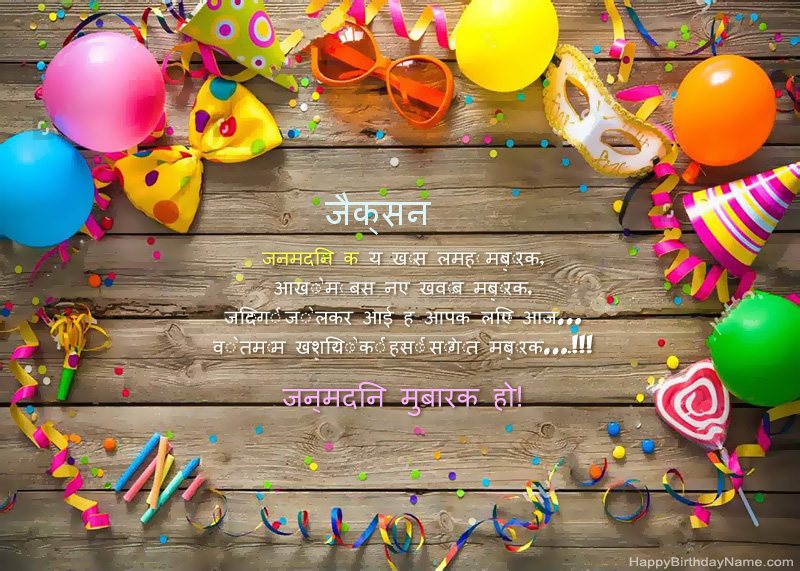 जैक्सन
जनमदिन क य खास लमह मबुरक,
आखों म बस नए खवाब मबुरक,
जिंदगी जो लेकर आई ह आपक लिए आज...
वो तमाम खशियों की हसीं सौगात मबुरक...!!!
जन्मदिन मुबारक हो!
HappyBirthdayName.com